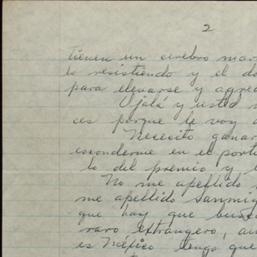 2
tienen un cerebro mar
lo resistiendo y el do
para elevarse y agrec
Ojalá y usted n
ces porque le voy a
Necesito ganar
esconderme en el porti
lo del premio y e
No me apellido
me apellido Sanmig
que hay que busca
raro extranjero, au
es México tengo que